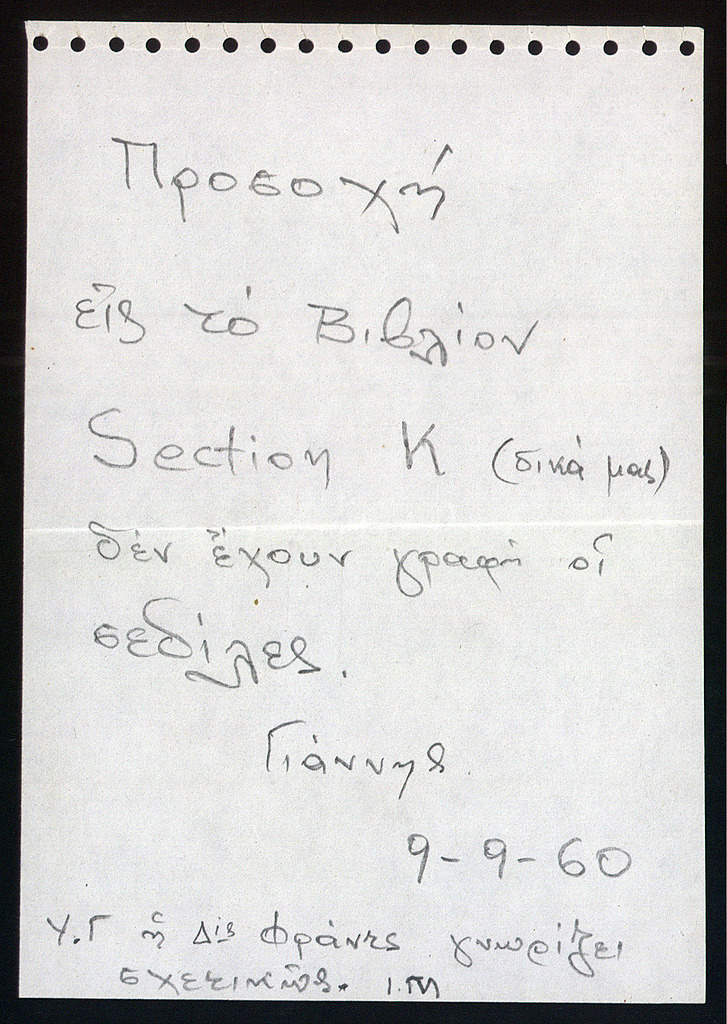 Προσοχή
εἰς τό Βιβλίον
Section K (δικά μας)
δέν ἔχουν γραφῆ οἱ
σεδίλες.
Γιάννης
9-9-60
Υ.Γ ἡ Δίς Φράντς γνωρίζει
σχετικῶς. Ι.Μ